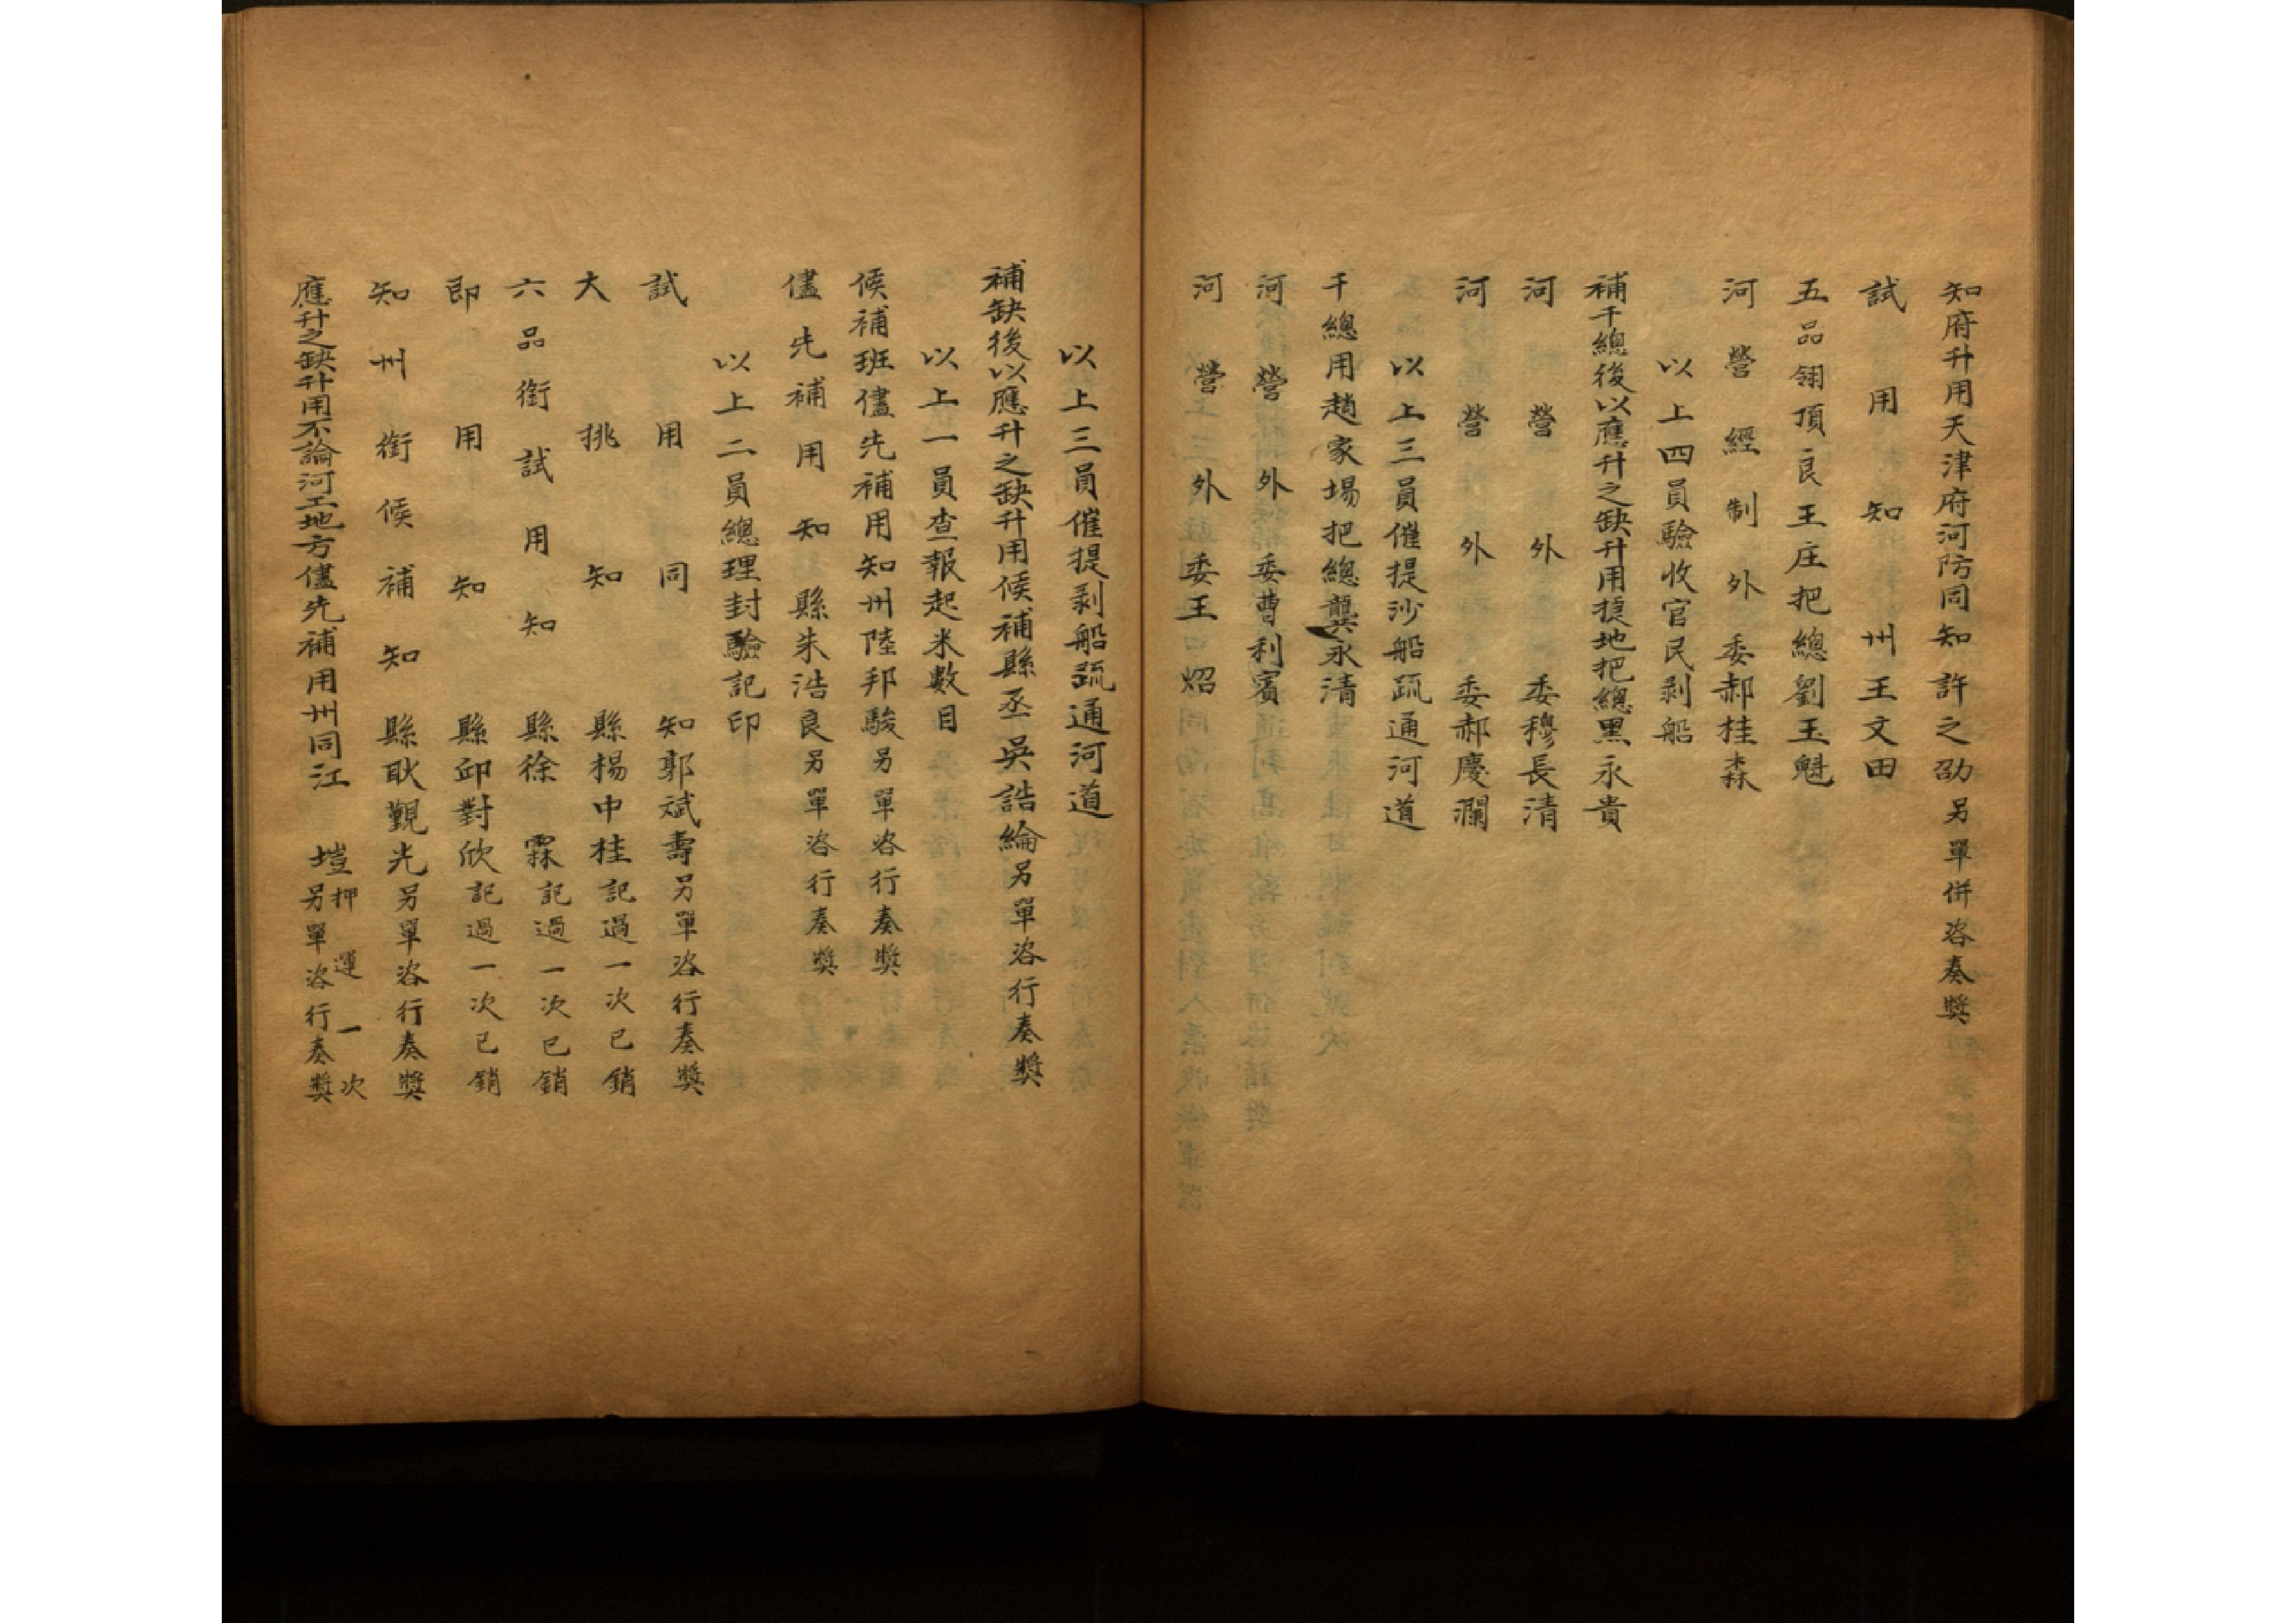 知府升用天津府河防同知許之劭另單併咨奏獎
試用知州王文田
五品翎頂良王庄把總劉玉魁
河營經制外委郝桂森
以上四員驗收官民剥船
補千總後以應升之缺升用搷地把總黑永貴
河營外委穆長清
河營外委郝慶瀾
以上三員催提沙船疏通河道
千總用趙家場把總龔永清
河營外委曹利賓
河營外委王炤
以上三員催提剥船疏通河道
補缺後以應升之缺升用候補縣丞吳誥綸另單咨行奏獎
以上一員查報起米數目
候補班儘先補用知州陸邦駿另單咨行奏獎
儘先補用知縣朱浩良另單咨行奏獎
以上二員總理封驗記印
試用同知郭斌壽另單咨行奏獎
大挑知縣楊中桂記過一次已銷
六品銜試用知縣徐霖記過一次已銷
即用知縣邱對欣記過一次已銷
知州銜候補知縣耿覲光另單咨行奏獎
應升之缺升用不論河工地方儘先補用州同江塏押運一次另單咨行奏獎